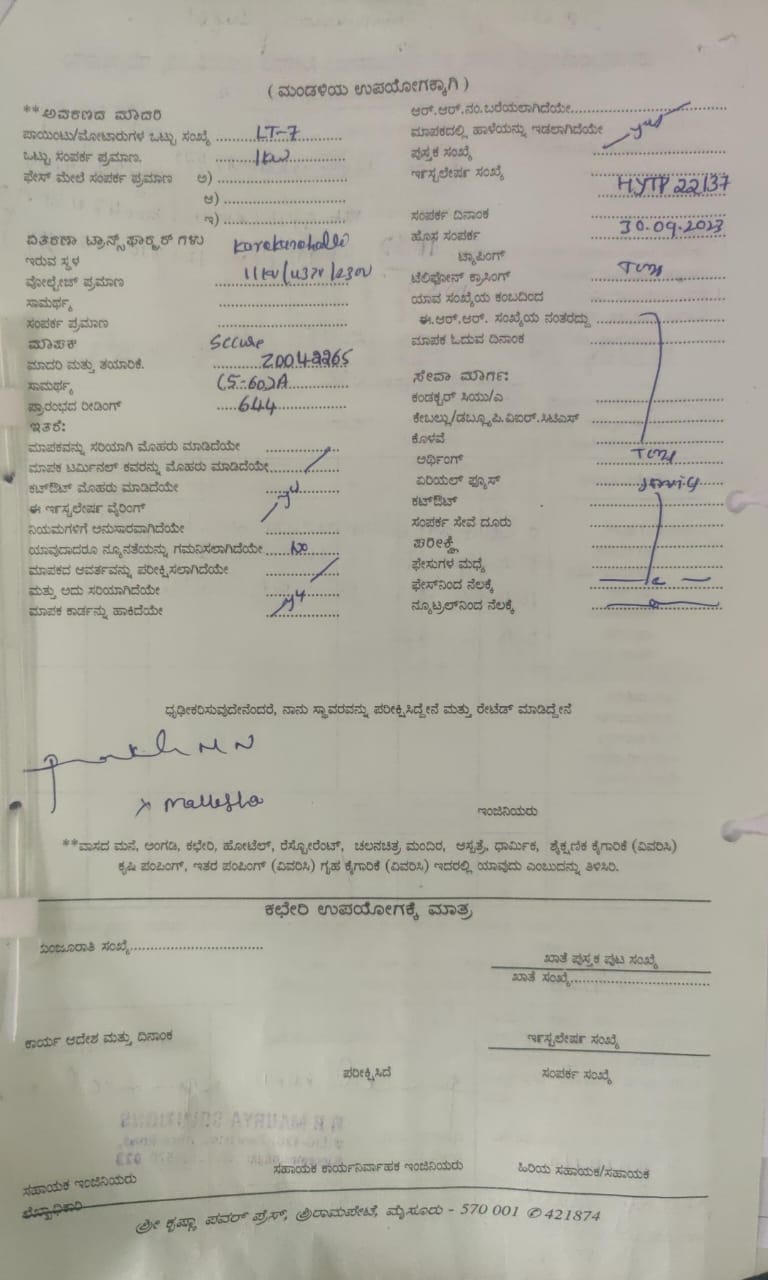 ( ಮಂಡಳಿಯ ಉಪಯೋಗಕ್ಕಾಗಿ )
**ಆವರಣದ ಮಾದರಿ
ಪಾಯಿಂಟು/ಮೋಟಾರುಗಳ ಒಟ್ಟು ಸಂಖ್ಯೆ LT-7
ಒಟ್ಟು ಸಂಪರ್ಕ ಪ್ರಮಾಣ. 1KW
ಫೇಸ್ ಮೇಲೆ ಸಂಪರ್ಕ ಪ್ರಮಾಣ ಅ)
ಆ)
ಇ)
ವಿತರಣಾ ಟ್ರಾನ್ಸ್‌ಫಾರ್ಮರ್ ಗಳು
ಇರುವ ಸ್ಥಳ
ವೋಲ್ಟೇಜ್ ಪ್ರಮಾಣ 11KV/433V/230V
ಸಾಮರ್ಥ್ಯ
ಸಂಪರ್ಕ ಪ್ರಮಾಣ
ಮಾಪಕ Secure
ಮಾದರಿ ಮತ್ತು ತಯಾರಿಕೆ. 20042265
ಸಾಮರ್ಥ್ಯ (5-60)A
ಪ್ರಾರಂಭದ ರೀಡಿಂಗ್ 644
ಇತರೆ:
ಮಾಪಕವನ್ನು ಸರಿಯಾಗಿ ಮೊಹರು ಮಾಡಿದೆಯೇ
ಮಾಪಕ ಟರ್ಮಿನಲ್ ಕವರನ್ನು ಮೊಹರು ಮಾಡಿದೆಯೇ
ಕಟ್‌ಔಟ್ ಮೊಹರು ಮಾಡಿದೆಯೇ yes
ಈ ಇನ್ಸ್ಟಲೇಷನ್ ವೈರಿಂಗ್
ನಿಯಮಗಳಿಗೆ ಅನುಸಾರವಾಗಿದೆಯೇ
ಯಾವುದಾದರೂ ನ್ಯೂನತೆಯನ್ನು ಗಮನಿಸಲಾಗಿದೆಯೇ No
ಮಾಪಕದ ಆವರ್ತವನ್ನು ಪರೀಕ್ಷಿಸಲಾಗಿದೆಯೇ
ಮತ್ತು ಅದು ಸರಿಯಾಗಿದೆಯೇ yes
ಮಾಪಕ ಕಾರ್ಡನ್ನು ಹಾಕಿದೆಯೇ
ಆರ್.ಆರ್.ನಂ.ಬರೆಯಲಾಗಿದೆಯೇ
ಮಾಪಕದಲ್ಲಿ ಹಾಳೆಯನ್ನು ಇಡಲಾಗಿದೆಯೇ yes
ಪುಸ್ತಕ ಸಂಖ್ಯೆ
ಇನ್ಸ್ಟಲೇಷನ್ ಸಂಖ್ಯೆ HYTP22137
ಸಂಪರ್ಕ ದಿನಾಂಕ
ಹೊಸ ಸಂಪರ್ಕ 30.09.2023
ಟ್ಯಾಪಿಂಗ್
ಟೆಲಿಫೋನ್ ಕ್ರಾಸಿಂಗ್
ಯಾವ ಸಂಖ್ಯೆಯ ಕಂಬದಿಂದ
ಈ.ಆರ್.ಆರ್. ಸಂಖ್ಯೆಯ ನಂತರದ್ದು
ಮಾಪಕ ಓದುವ ದಿನಾಂಕ
ಸೇವಾ ಮಾರ್ಗ:
ಕಂಡಕ್ಟರ್ ಸಿಯು/ಎ
ಕೇಬಲ್ಲು/ಡಬ್ಲೂಪಿ.ಐಆರ್.ಸಿಟಿಎಸ್
ಕೊಳವೆ
ಅರ್ಥಿಂಗ್
ಏರಿಯಲ್ ಫ್ಯೂಸ್
ಕಟ್‌ಔಟ್
ಸಂಪರ್ಕ ಸೇವೆ ದೂರು
ಪರೀಕ್ಷೆ
ಫೇಸುಗಳ ಮಧ್ಯೆ
ಫೇಸ್‌ನಿಂದ ನೆಲಕ್ಕೆ
ನ್ಯೂಟ್ರಲ್‌ನಿಂದ ನೆಲಕ್ಕೆ
ಧೃಢೀಕರಿಸುವುದೇನೆಂದರೆ, ನಾನು ಸ್ಥಾವರವನ್ನು ಪರೀಕ್ಷಿಸಿದ್ದೇನೆ ಮತ್ತು ರೇಟೆಡ್ ಮಾಡಿದ್ದೇನೆ
ಇಂಜಿನಿಯರು
**ವಾಸದ ಮನೆ, ಅಂಗಡಿ, ಕಛೇರಿ, ಹೋಟೆಲ್, ರೆಸ್ಟೋರೆಂಟ್, ಚಲನಚಿತ್ರ ಮಂದಿರ, ಆಸ್ಪತ್ರೆ, ಧಾರ್ಮಿಕ, ಶೈಕ್ಷಣಿಕ ಕೈಗಾರಿಕೆ (ವಿವರಿಸಿ)
ಕೃಷಿ ಪಂಪಿಂಗ್, ಇತರ ಪಂಪಿಂಗ್ (ವಿವರಿಸಿ) ಗೃಹ ಕೈಗಾರಿಕೆ (ವಿವರಿಸಿ) ಇದರಲ್ಲಿ ಯಾವುದು ಎಂಬುದನ್ನು ತಿಳಿಸಿರಿ.
ಕಛೇರಿ ಉಪಯೋಗಕ್ಕೆ ಮಾತ್ರ
ಮಂಜೂರಾತಿ ಸಂಖ್ಯೆ
ಖಾತೆ ಪುಸ್ತಕ ಪುಟ ಸಂಖ್ಯೆ
ಖಾತೆ ಸಂಖ್ಯೆ
ಕಾರ್ಯ ಆದೇಶ ಮತ್ತು ದಿನಾಂಕ
ಇನ್ಸ್ಟಲೇಷನ್ ಸಂಖ್ಯೆ
ಪರೀಕ್ಷಿಸಿದೆ
ಸಂಪರ್ಕ ಸಂಖ್ಯೆ
ಸಹಾಯಕ ಇಂಜಿನಿಯರು
ಸಹಾಯಕ ಕಾರ್ಯನಿರ್ವಾಹಕ ಇಂಜಿನಿಯರು
ಹಿರಿಯ ಸಹಾಯಕ/ಸಹಾಯಕ
ಶ್ರೀ ಕೃಷ್ಣಾ ಪವರ್ ಪ್ರೆಸ್, ಶ್ರೀರಾಮಪೇಟೆ, ಮೈಸೂರು - 570 001 ✆ 421874